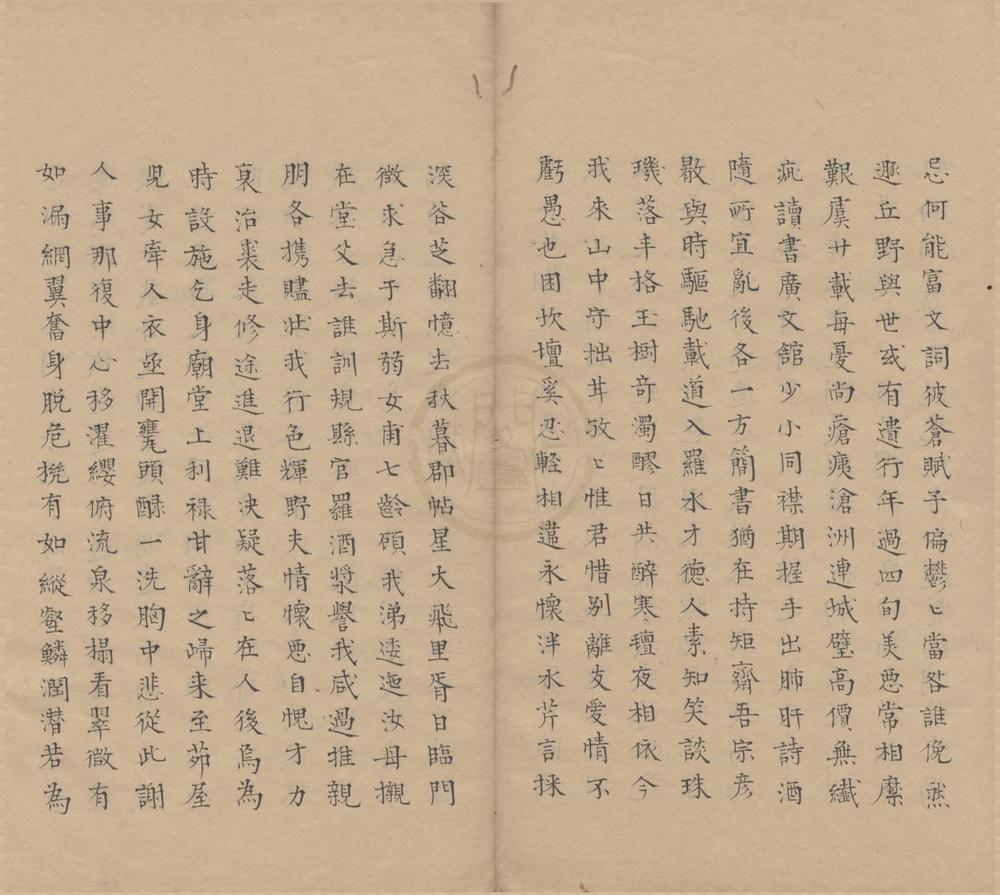 忌何能富文詞彼蒼賦予偏鬱〻當咎誰俛然
遯丘野與世或有遺行年過四旬美惡常相縻
艱虞廿載每憂尚瘡痍滄洲連城璧高價無纖
疵讀書廣文舘少小同襟期握手出肺肝詩酒
隨所宜亂後各一方簡書猶在持矩齋吾宗彦
敭與時驅馳載道入羅水才德人素知笑談珠
璣落丰格玉樹竒濁醪日共醉寒氊夜相依今
我來山中守拙甘孜〻惟君惜別離友愛情不
虧愚也困坎壈奚忍輕相違永懷泮水芹言採
深谷芝翻憶去秋暮郡帖星火飛里胥日臨門
徴求急于斯弱女甫七齡頋我涕逶迤汝母櫬
在堂父去誰訓規縣官羅酒漿譽我咸過推親
朋各攜贐壯我行色輝野夫情懷惡自愧才力
衰治裘走修途進退難決疑落〻在人後烏為
時設施乞身廟堂上利祿甘辭之歸来至茆屋
児女牽人衣亟開甕頭醁一洗胸中悲從此謝
人事那復中心移濯纓俯流泉移榻看翠微有
如漏網翼奮身脫危挽有如縱壑鱗潤潛若為